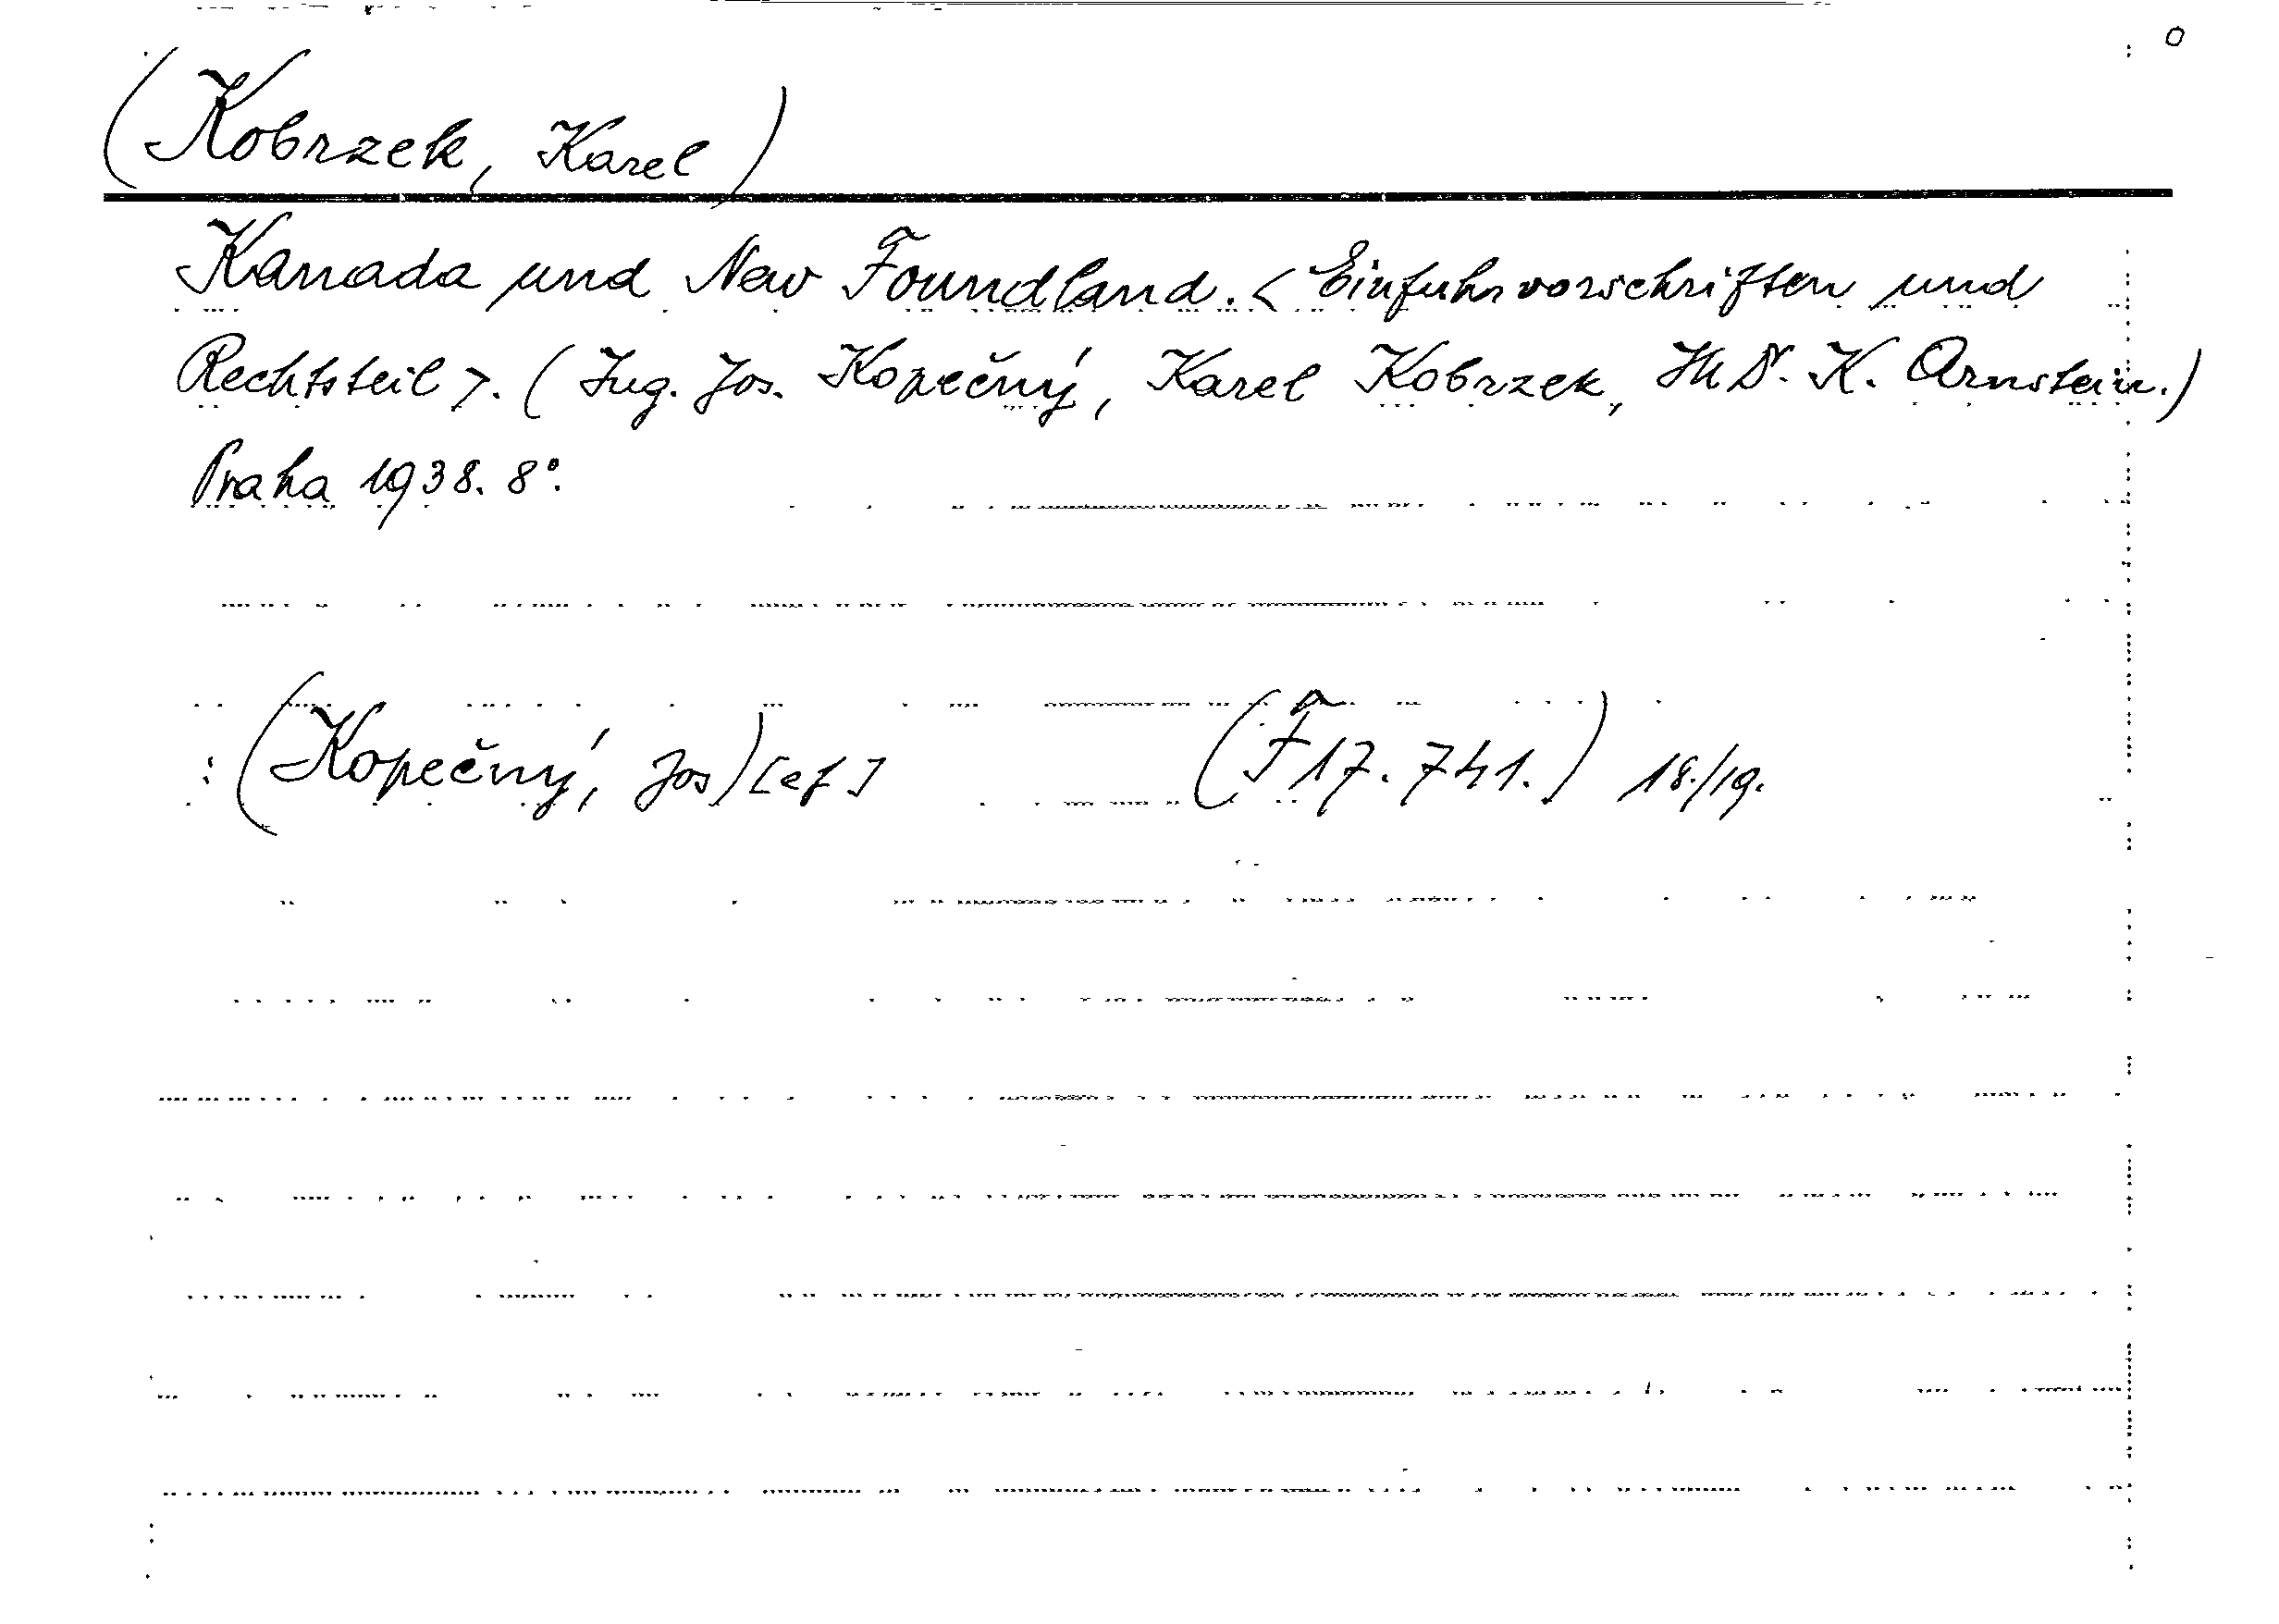 (Kobrzek, Karel)
Kanada und New Foundland. < Einfuhrvorschriften und
Rechtsteil >. (Ing. Jos. Kopečný, Karel Kobrzek, K. Arnstein.)
Praha 1938. 8°.
: (Kopečný, Jos)[ef] (F 17.741.) 18./19.